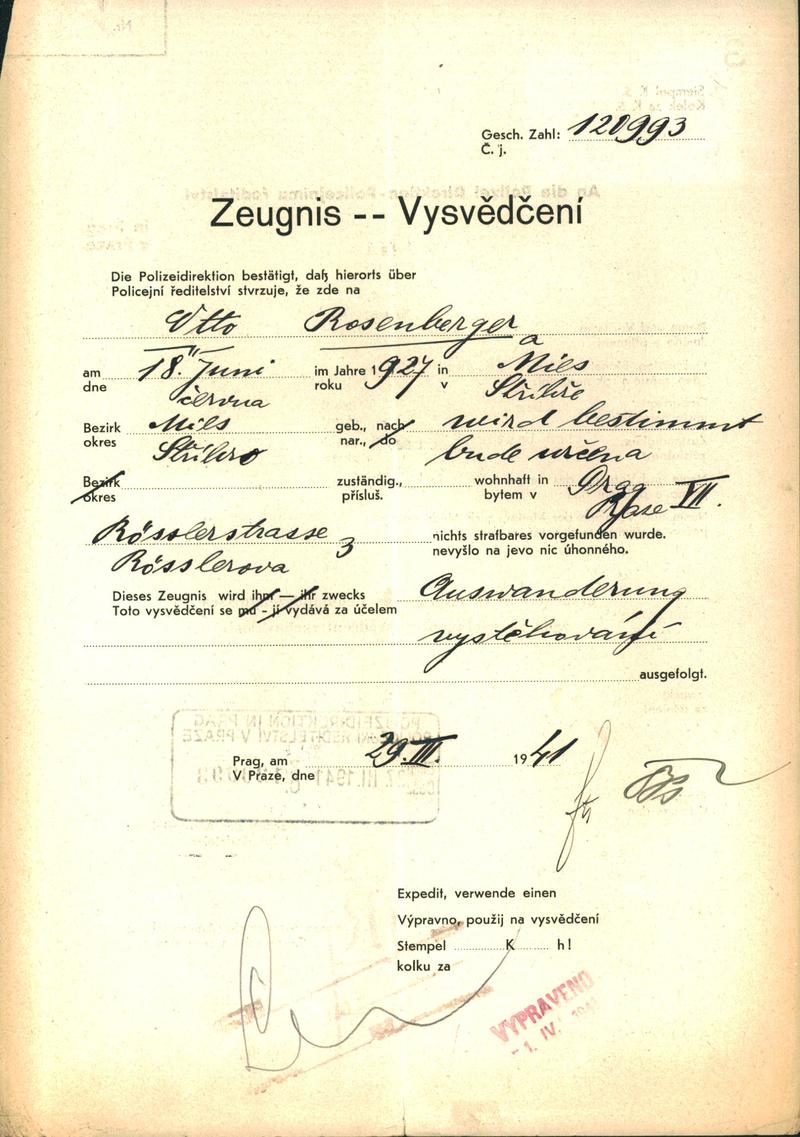 Gesch. Zahl: 120993
Č. j.
Zeugnis -- Vysvědčení
Die Polizeidirektion bestätigt, daß hierorts über
Policejní ředitelství stvrzuje, že zde na
Otto Rosenberger a
am 18. Juni im Jahre 1927 in Mies
dne června roku v Stříbře
Bezirk Mies geb., nach wird bestimmt
okres Stříbro nar., do bude určena
Bezirk zuständig., wohnhaft in Prag
okres přísluš. bytem v Praze VII.
Rösslerstrasse 3 nichts strafbares vorgefunden wurde.
Rösslerova nevyšlo na jevo nic úhonného.
Dieses Zeugnis wird ihm — ihr zwecks Auswanderung
Toto vysvědčení se mu - jí vydává za účelem
vystěhování
ausgefolgt.
Prag, am 29. III. 1941
V Praze, dne
Expedit, verwende einen
Výpravno, použij na vysvědčení
Stempel K h!
kolku za
VYPRAVENO
- 1. IV. 1941